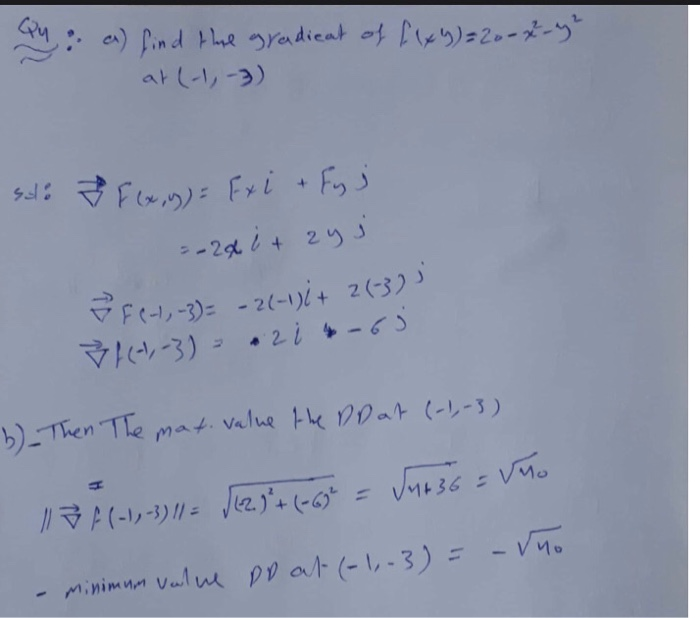 Q4: a) find the gradieat of f(xy)=20-x²-y²
at (-1, -3)
sol: ∇⃗ F(x,y) = Fx i + Fy j
= -2x i + 2y j
∇⃗ F(-1,-3) = -2(-1)i + 2(-3)j
∇⃗ f(-1,-3) = 2i + -6j
b) - Then The max. value the DD at (-1,-3)
||∇⃗ f(-1,-3)|| = √(-2)²+(-6)² = √4+36 = √40
- minimum value DD at (-1,-3) = -√40